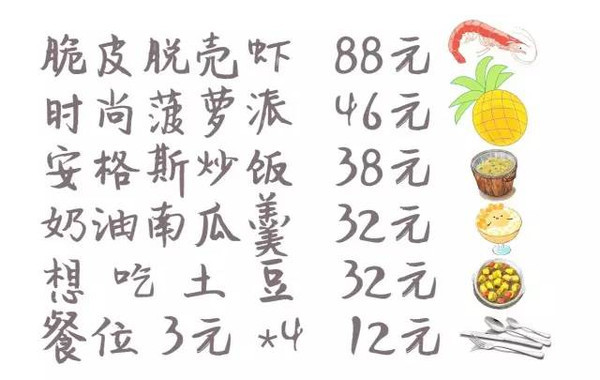 脆皮脱壳虾 88元
时尚菠萝派 46元
安格斯炒饭 38元
奶油南瓜羹 32元
想吃土豆 32元
餐位3元*4 12元